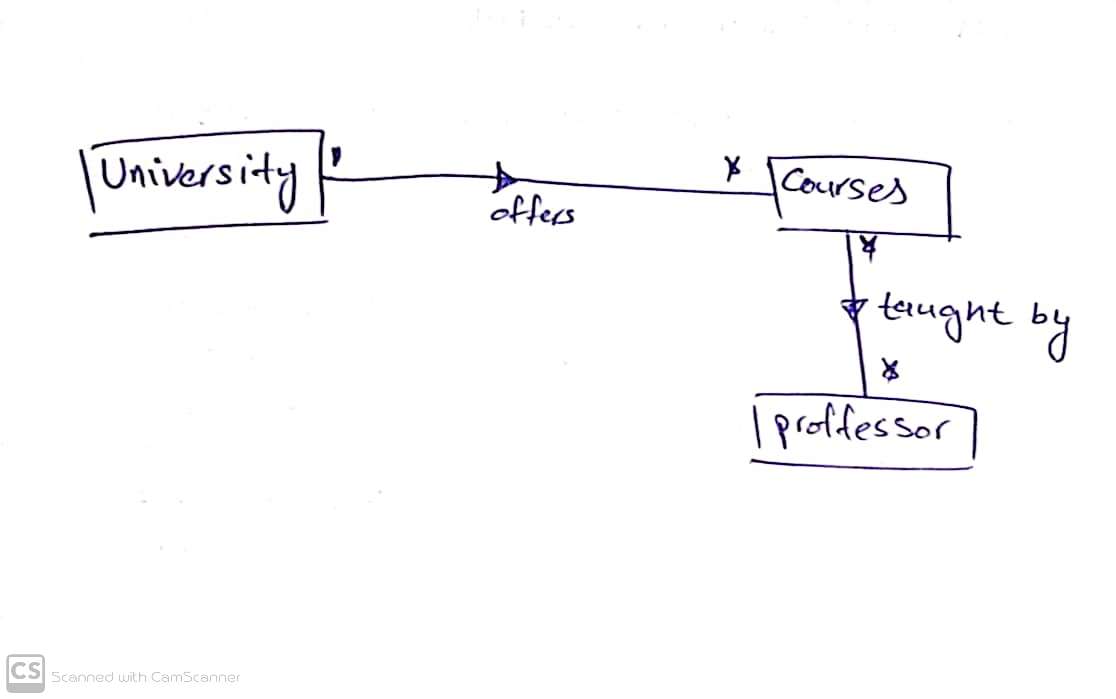 University
1
*
Courses
offers
*
taught by
*
proffessor
CS Scanned with CamScanner